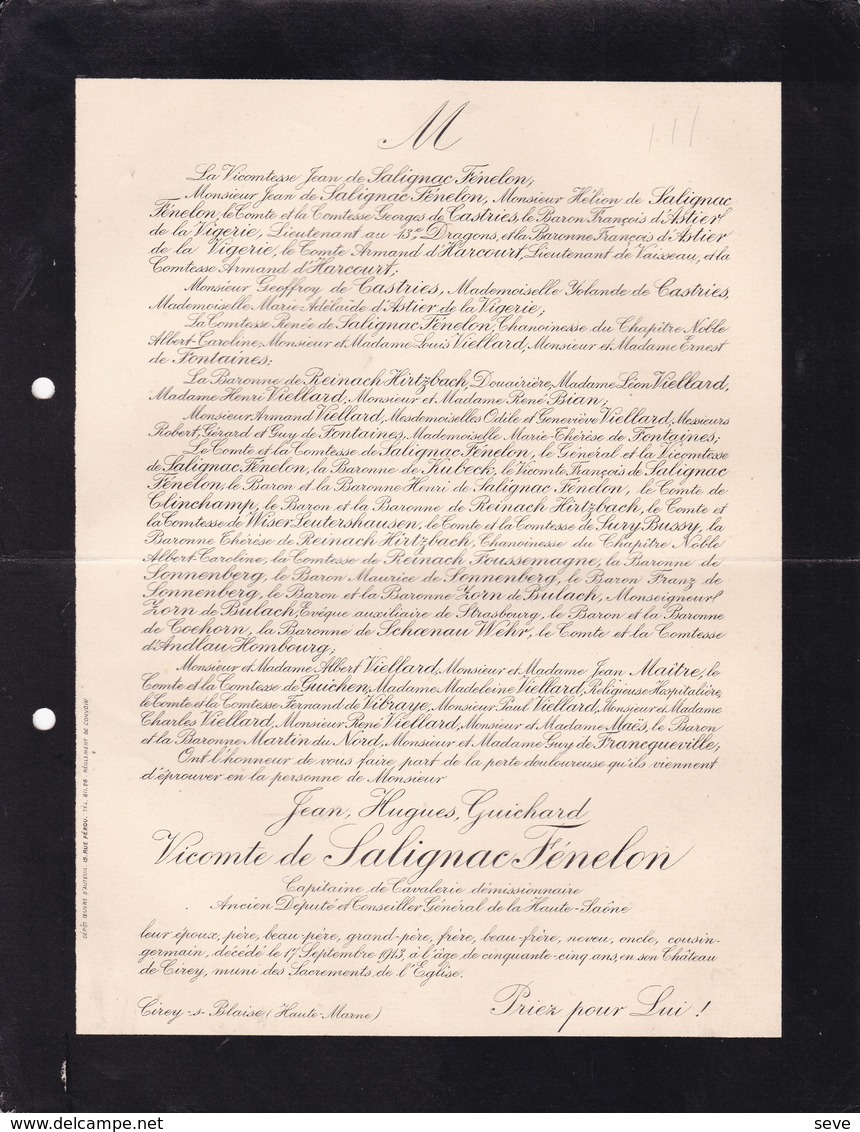 M
La Vicomtesse Jean de Salignac Fénelon;
Monsieur Jean de Salignac Fénelon, Monsieur Hélion de Salignac
Fénelon, le Comte et la Comtesse Georges de Castries, le Baron François d'Astier
de la Vigerie, Lieutenant au 13e Dragons, et la Baronne François d'Astier
de la Vigerie, le Comte Armand d'Harcourt, Lieutenant de Vaisseau, et la
Comtesse Armand d'Harcourt;
Monsieur Geoffroy de Castries, Mademoiselle Yolande de Castries,
Mademoiselle Marie-Adélaïde d'Astier de la Vigerie;
La Comtesse Renée de Salignac Fénelon, Chanoinesse du Chapitre Noble
Albert-Caroline, Monsieur et Madame Louis Viellard, Monsieur et Madame Ernest
de Fontaines;
La Baronne de Reinach Hirtzbach, Douairière, Madame Léon Viellard,
Madame Henri Viellard, Monsieur et Madame René Bian;
Monsieur Armand Viellard, Mesdemoiselles Odile et Geneviève Viellard, Messieurs
Robert, Gérard et Guy de Fontaines, Mademoiselle Marie-Thérèse de Fontaines;
Le Comte et la Comtesse de Salignac Fénelon, le Général et la Vicomtesse
de Salignac Fénelon, la Baronne de Kubeck, le Vicomte François de Salignac
Fénelon, le Baron et la Baronne Henri de Salignac Fénelon, le Comte de
Clinchamp, le Baron et la Baronne de Reinach Hirtzbach, le Comte et
la Comtesse de Wiser Leutershausen, le Comte et la Comtesse de Sury Bussy, la
Baronne Thérèse de Reinach Hirtzbach, Chanoinesse du Chapitre Noble
Albert-Caroline, la Comtesse de Reinach Foussemagne, la Baronne de
Sonnenberg, le Baron Maurice de Sonnenberg, le Baron Franz de
Sonnenberg, le Baron et la Baronne Zorn de Bulach, Monseigneur
Zorn de Bulach, Evêque auxiliaire de Strasbourg, le Baron et la Baronne
de Coehorn, la Baronne de Schœnau Wehr, le Comte et la Comtesse
d'Andlau Hombourg;
Monsieur et Madame Albert Viellard, Monsieur et Madame Jean Maître, le
Comte et la Comtesse de Guichen, Madame Madeleine Viellard, Religieuse Hospitalière,
le Comte et la Comtesse Fernand de Vibraye, Monsieur Paul Viellard, Monsieur et Madame
Charles Viellard, Monsieur René Viellard, Monsieur et Madame Maës, le Baron
et la Baronne Martin du Nord, Monsieur et Madame Guy de Francqueville;
Ont l'honneur de vous faire part de la perte douloureuse qu'ils viennent
d'éprouver en la personne de Monsieur
Jean, Hugues, Guichard
Vicomte de Salignac Fénelon
Capitaine de Cavalerie démissionnaire
Ancien Député et Conseiller Général de la Haute-Saône
leur époux, père, beau-père, grand-père, frère, beau-frère, neveu, oncle, cousin-
germain, décédé le 17 Septembre 1913, à l'âge de cinquante-cinq ans, en son Château
de Cirey, muni des Sacrements de l'Eglise.
Priez pour Lui !
Cirey-s-Blaise (Haute-Marne)
DÉPÔT ŒUVRE D'AUTEUIL, 15, RUE PÉROU. TÉL. 811.28 - RÈGLEMENT DE CONVOIS
delcampe.net
seve